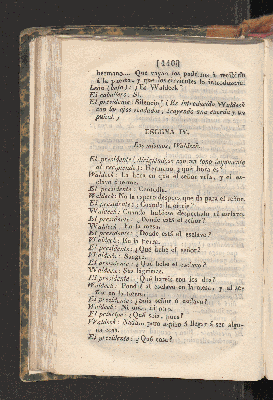 (110)
hermano... Que vayan los padrinos á recibirlo
á la puerta, y que los sirvientes lo introduzcan.
Leon (bajo): ¿Es Waldeck?
El caballero: Sí.
El presidente: Silencio! (Es introducido Waldeck
con los ojos vendados, trayendo una cuerda y un
puñal.)
ESCENA IV.
Los mismos, Waldeck.
El presidente (dirigiéndose con un tono
): Hermano ¿qué hora es?
Waldeck: La hora en que el señor vela, y el esclavo
duerme.
El presidente: Contadla.
Waldeck: No la espero despues que da para el señor.
El presidente: ¿Cuándo la oireis?
Waldeck: Cuando hubiere despertado el esclavo.
El presidente: ¿Donde está el señor?
Waldeck: En la mesa.
El presidente: ¿Donde está el esclavo?
Waldeck: En la tierra.
El presidente: ¿Qué bebe el señor?
Waldeck: Sangre.
El presidente: ¿Qué bebe el esclavo?
Waldeck: Sus lágrimas.
El presidente: ¿Qué hareis con los dos?
Waldeck: Pondré al esclavo en la mesa, y al señor
en la tierra.
El presidente: ¿Sois señor ó esclavo?
Waldeck: Ni uno, ni otro.
El presidente: ¿Qué sois, pues?
Waldeck: Nada; pero aspiro á llegar á ser alguna
cosa.
El presidente: ¿Qué cosa?